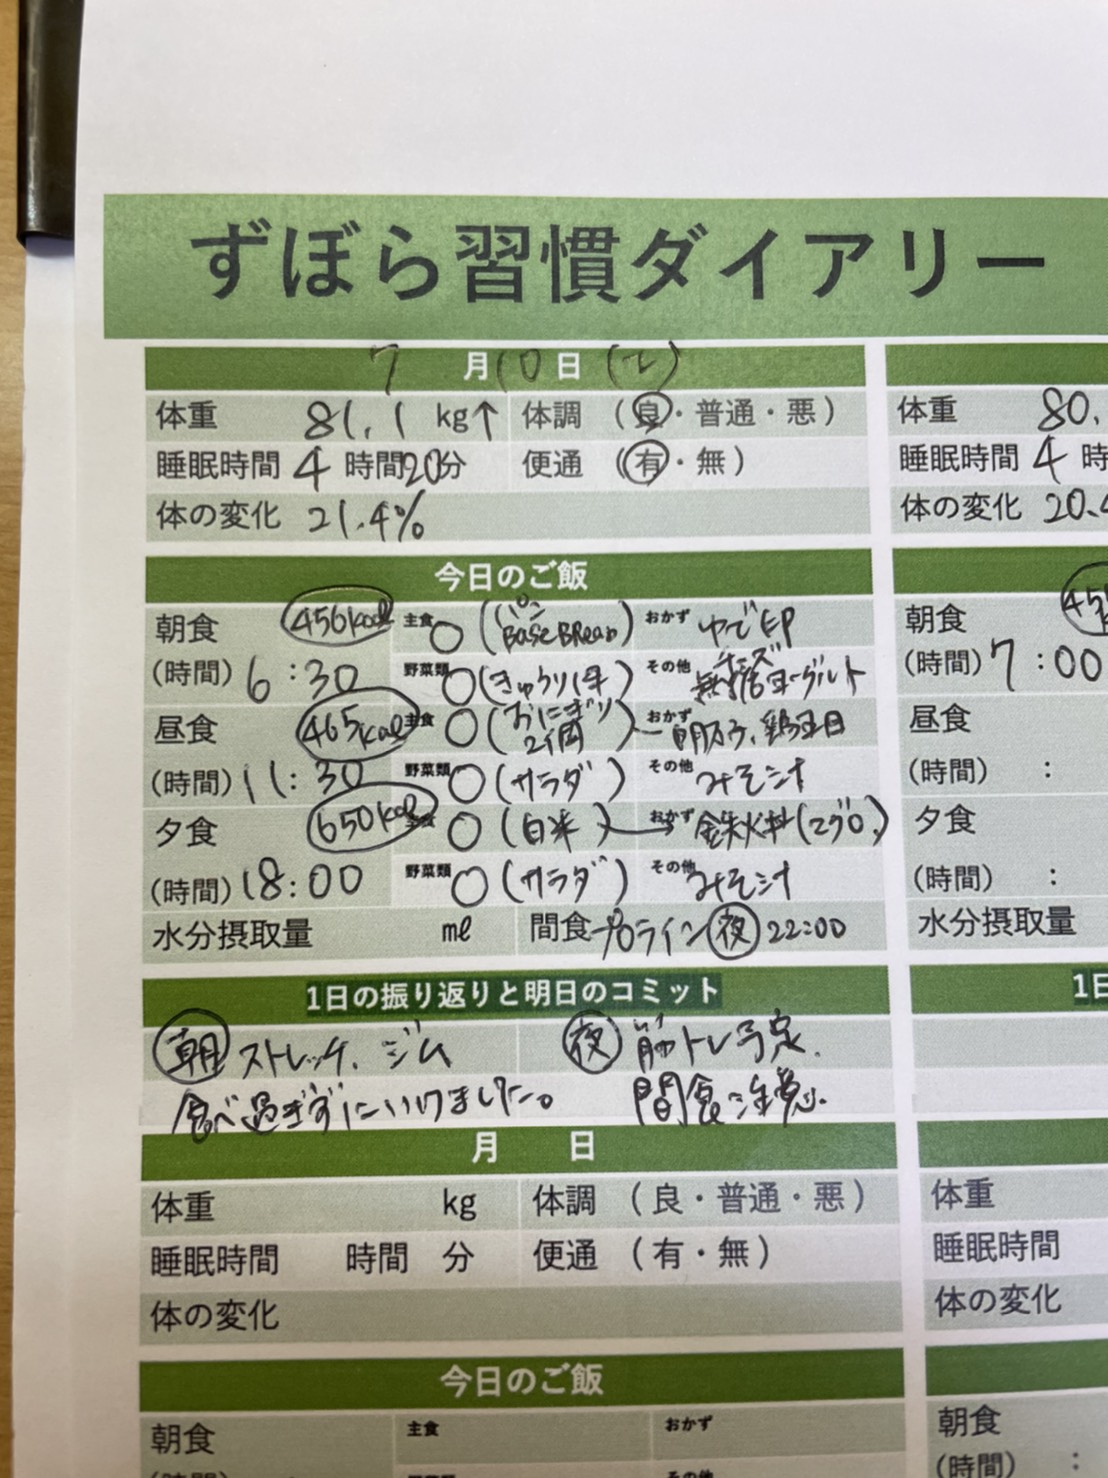 ずぼら習慣ダイアリー
7月10日
体重 81.1 kg↑ 体調 (良・普通・悪)
睡眠時間 4 時間20分 便通 (有・無)
体の変化 21.4%
今日のご飯
朝食 456kcal 主食 ○(パン BASE BREAD) おかず ゆで卵
(時間) 6:30 野菜類 ○(きゅうり1本) その他 チーズ 無糖ヨーグルト
昼食 465kcal 主食 ○(おにぎり 2個) おかず
(時間) 11:30 野菜類 ○(サラダ) その他 みそ汁
夕食 650kcal 主食 ○(白米) おかず 鉄火丼(マグロ)
(時間) 18:00 野菜類 ○(サラダ) その他 みそ汁
水分摂取量 ml 間食 プロテイン 夜 22:00
1日の振り返りと明日のコミット
朝 ストレッチ、ジム 夜 筋トレ予定.
食べ過ぎずにいけました。 間食注意.
月 日
体重 kg 体調 (良・普通・悪)
睡眠時間 時間 分 便通 (有・無)
体の変化
今日のご飯
朝食 主食 おかず
(時間) 野菜類 その他
体重 80.
睡眠時間 4 時
体の変化 20.4
朝食 45
(時間) 7:00
昼食
(時間) :
夕食
(時間) :
水分摂取量
1日
体重
睡眠時間
体の変化
朝食
(時間) :